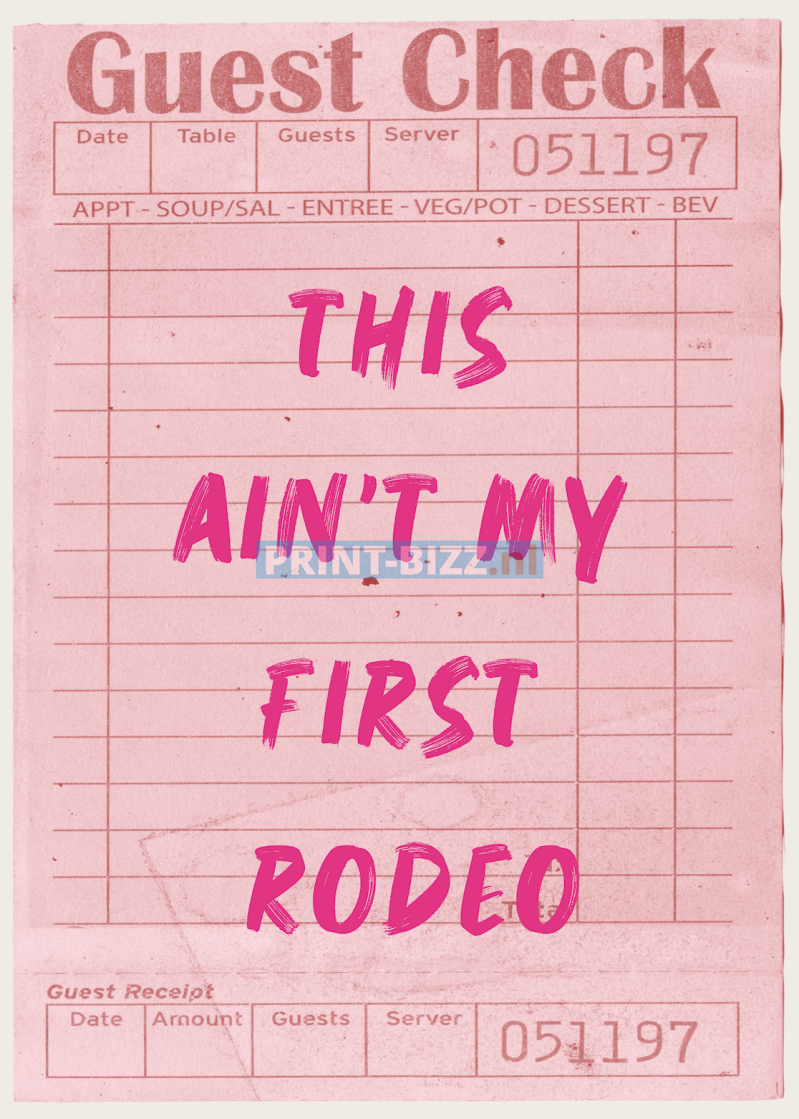 Guest Check
Date Table Guests Server 051197
APPT - SOUP/SAL - ENTREE - VEG/POT - DESSERT - BEV
THIS
AIN'T MY
PRINT-BIZZ.nl
FIRST
RODEO
Total
Guest Receipt
Date Amount Guests Server 051197